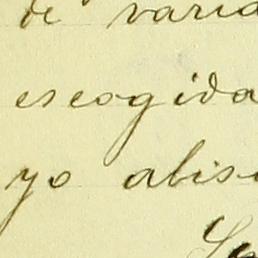 de varia
escogida
yo abis